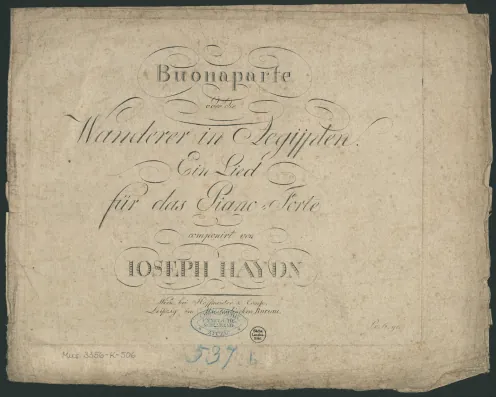 Buonaparte
oder die
Wanderer in Aegijpten.
Ein Lied
für das Piano-Forte
componirt von
IOSEPH HAYDN
Wien, bey Hoffmeister & Comp.
Leipzig im Bureau
Mus. 3356-K-506
537. b